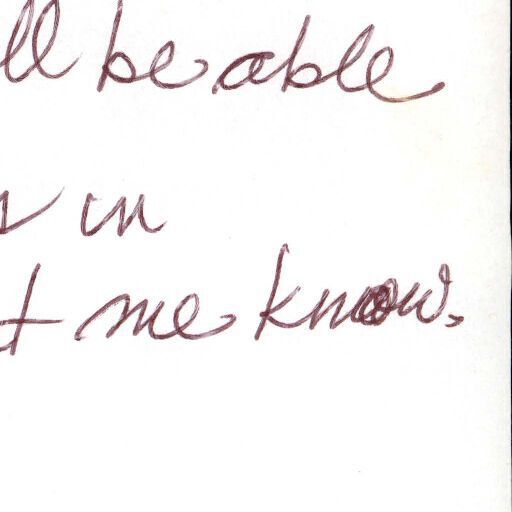 ll be able
in
t me know.